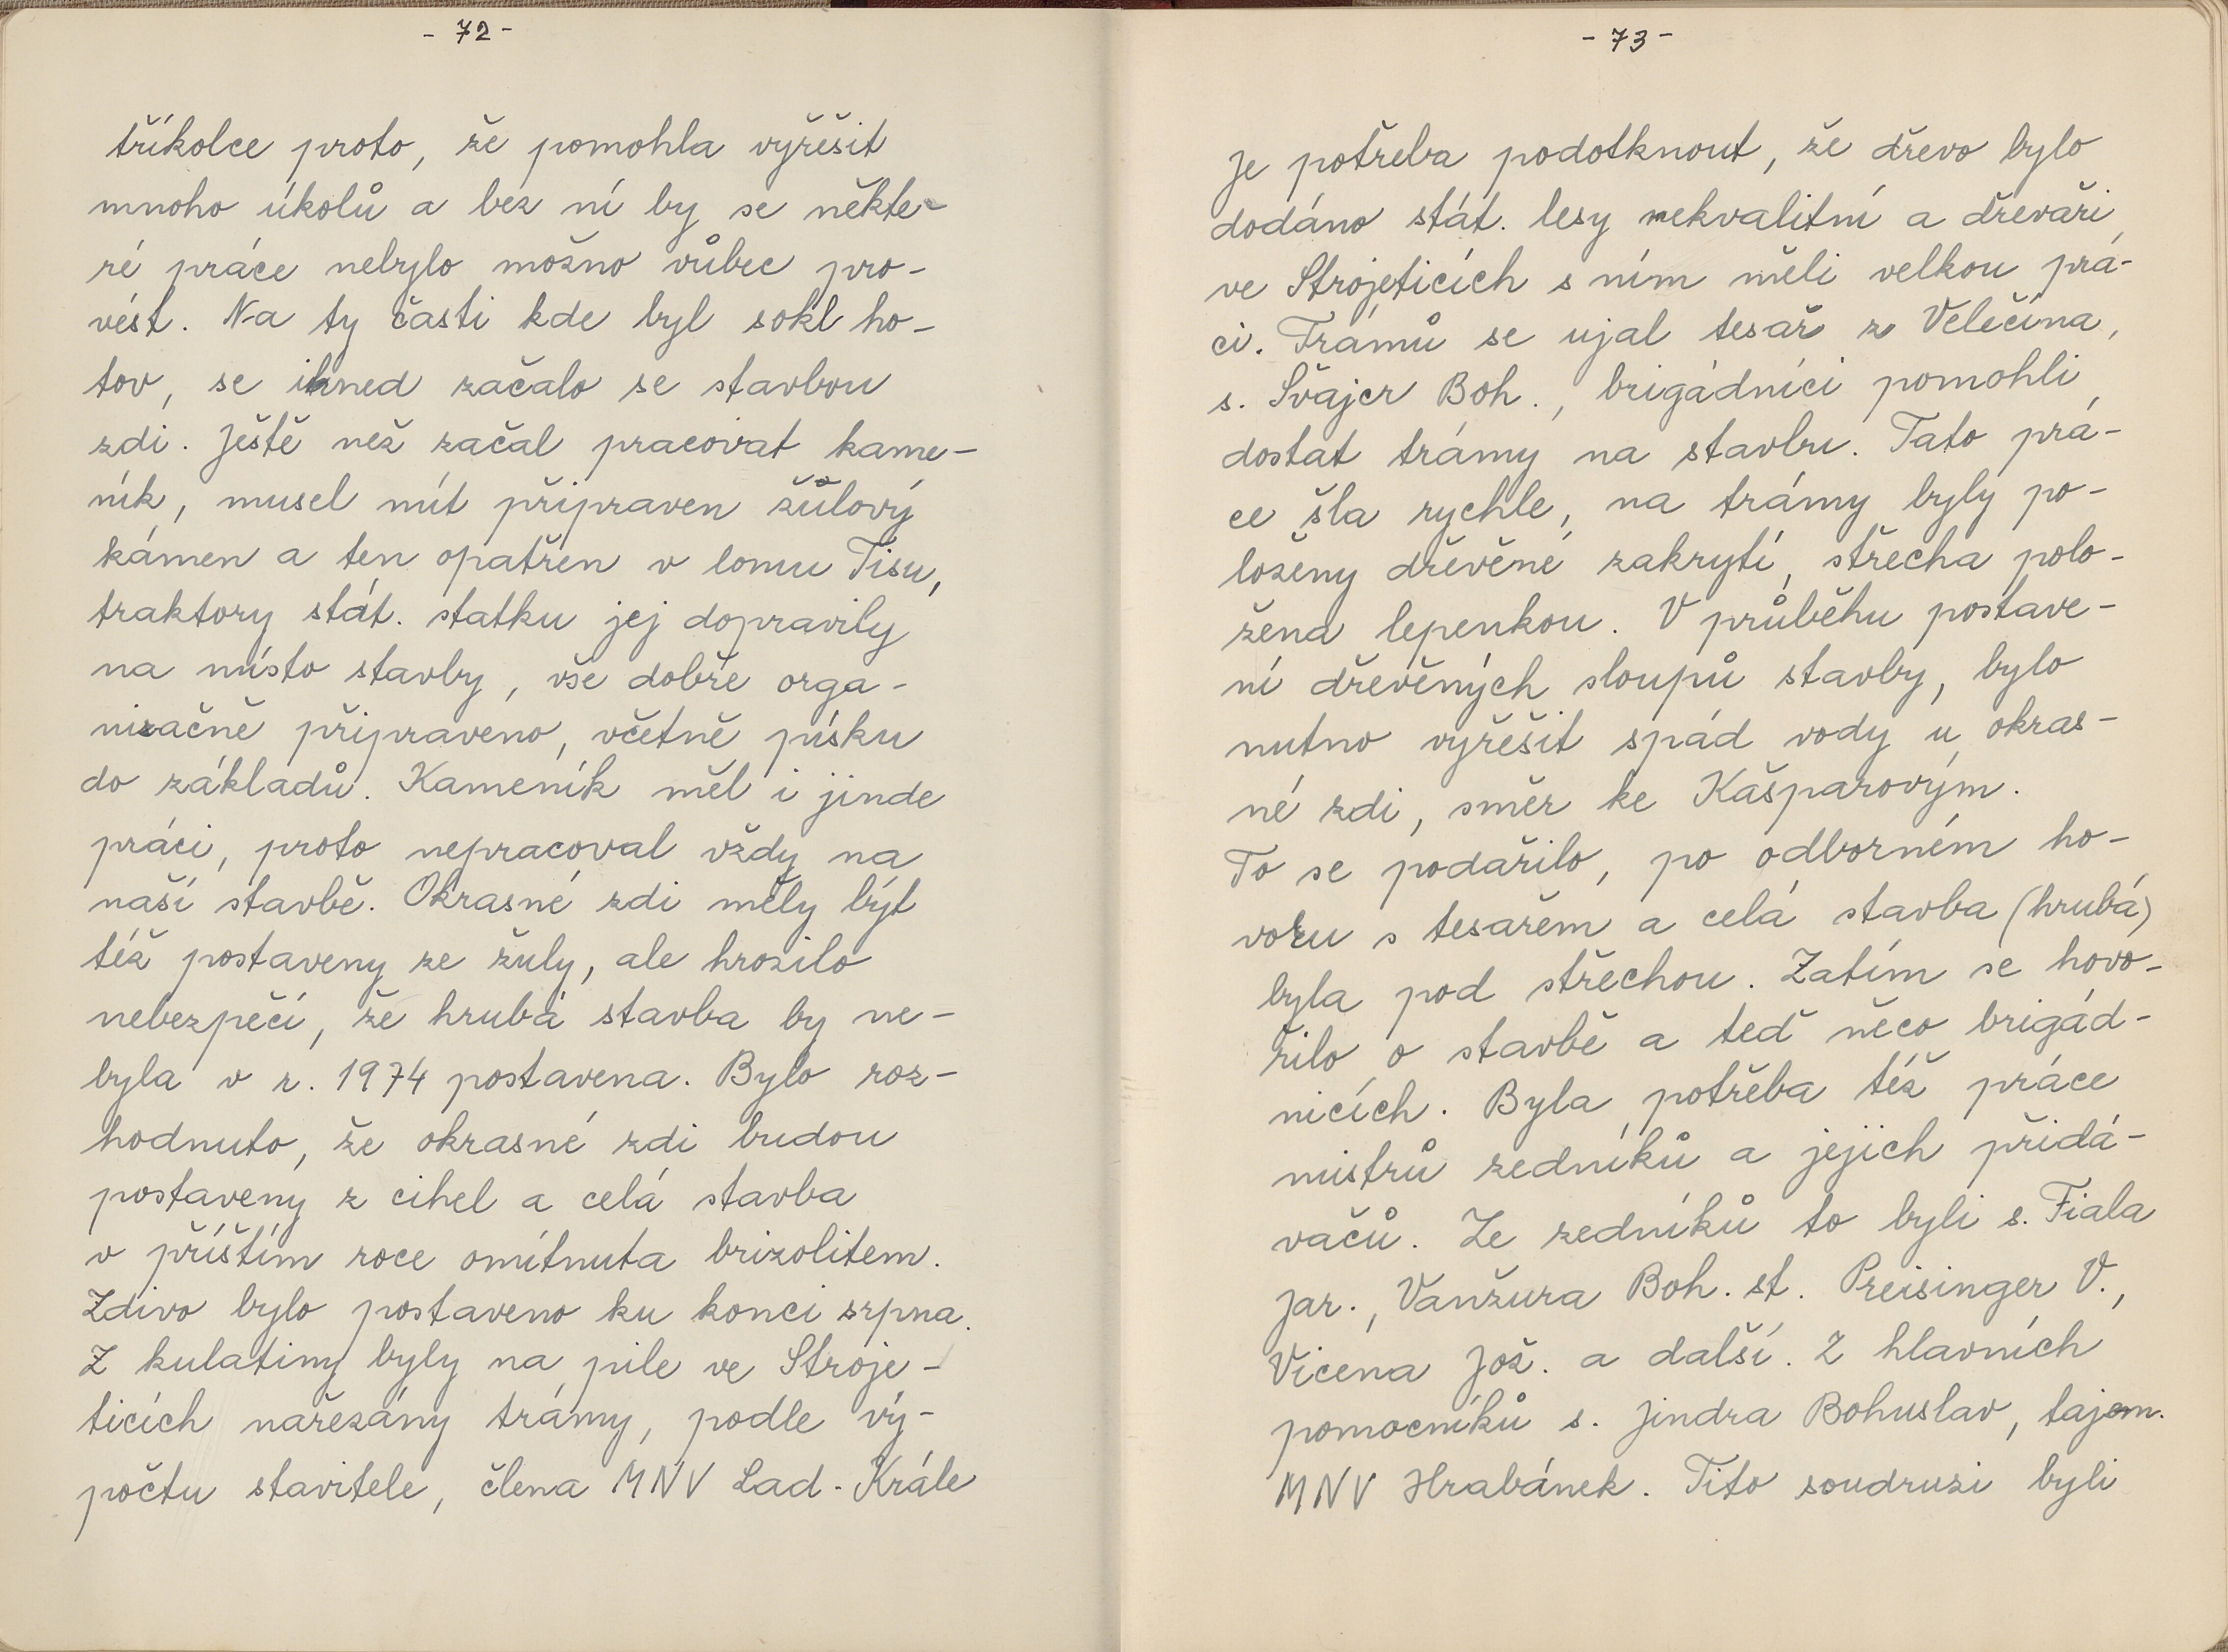 - 72 -
tříkolce proto, že pomohla vyřešit
mnoho úkolů a bez ní by se někte-
ré práce nebylo možno vůbec pro-
vést. Na ty časti kde byl sokl ho-
tov, se ihned začalo se stavbou
zdi. Ještě než začal pracovat kame-
ník, musel mít připraven žůlový
kámen a ten opatřen v lomu Tisu,
traktory stát. statku jej dopravily
na místo stavby, vše dobře orga-
nizačně připraveno, včetně písku
do základů. Kameník měl i jinde
práci, proto nepracoval vždy na
naší stavbě. Okrasné zdi měly být
též postaveny ze žuly, ale hrozilo
nebezpečí, že hrubá stavba by ne-
byla v r. 1974 postavena. Bylo roz-
hodnuto, že okrasné zdi budou
postaveny z cihel a celá stavba
v příštím roce omítnuta brizolitem.
Zdivo bylo postaveno ku konci srpna.
Z kulatiny byly na pile ve Stroje-
ticích nařezány trámy, podle vý-
počtu stavitele, člena MNV Lad. Krále
- 73 -
Je potřeba podotknout, že dřevo bylo
dodáno stát. lesy nekvalitní a dřevaři
ve Strojeticích s ním měli velkou prá-
ci. Trámů se ujal tesař z Velečína,
s. Švajcr Boh., brigádníci pomohli
dostat trámy na stavbu. Tato prá-
ce šla rychle, na trámy byly po-
loženy dřevěné zakrytí, střecha polo-
žena lepenkou. V průběhu postave-
ní dřevěných sloupů stavby, bylo
nutno vyřešit spád vody u okras-
né zdi, směr ke Kašparovým.
To se podařilo, po odborném ho-
voru s tesařem a celá stavba (hrubá)
byla pod střechou. Zatím se hovo-
řilo o stavbě a teď něco brigád-
nicích. Byla potřeba též práce
mistrů zedníků a jejich přidá-
vačů. Ze zedníků to byli s. Fiala
Jar., Vanžura Boh. st. Preisinger V.,
Vicena Jož. a další. Z hlavních
pomocníků s. Jindra Bohuslav, tajem.
MNV Hrabánek. Tito soudruzi byli